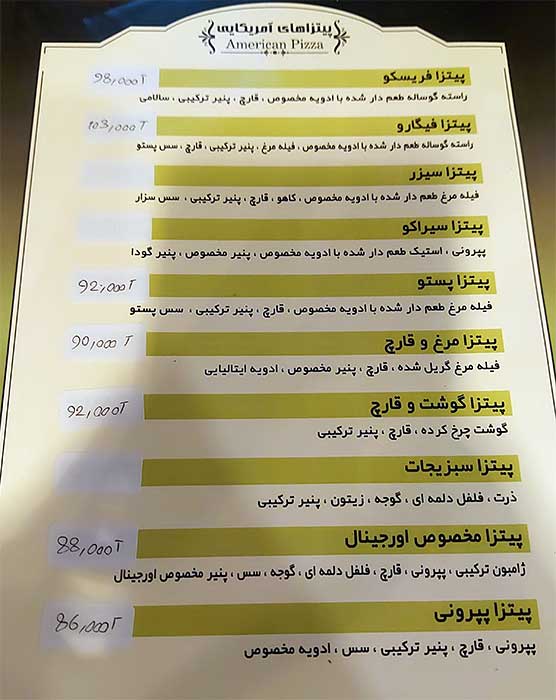 پیتزاهای آمریکایی
American Pizza
پیتزا فریسکو 98,000T
راسته گوساله طعم دار شده با ادویه مخصوص ، قارچ ، پنیر ترکیبی ، سالامی
پیتزا فیگارو 103,000T
راسته گوساله طعم دار شده با ادویه مخصوص ، فیله مرغ ، پنیر ترکیبی ، قارچ ، سس پستو
پیتزا سیزر
فیله مرغ طعم دار شده با ادویه مخصوص ، کاهو ، قارچ ، پنیر ترکیبی ، سس سزار
پیتزا سیراکو
پپرونی ، استیک طعم دار شده با ادویه مخصوص ، پنیر مخصوص ، پنیر گودا
پیتزا پستو 92,000T
فیله مرغ طعم دار شده با ادویه مخصوص ، قارچ ، پنیر ترکیبی ، سس پستو
پیتزا مرغ و قارچ 90,000T
فیله مرغ گریل شده ، قارچ ، پنیر مخصوص ، ادویه ایتالیایی
پیتزا گوشت و قارچ 92,000T
گوشت چرخ کرده ، قارچ ، پنیر ترکیبی
پیتزا سبزیجات
ذرت ، فلفل دلمه ای ، گوجه ، زیتون ، پنیر ترکیبی
پیتزا مخصوص اورجینال 88,000T
ژامبون ترکیبی ، پپرونی ، قارچ ، فلفل دلمه ای ، گوجه ، سس ، پنیر مخصوص اورجینال
پیتزا پپرونی 86,000T
پپرونی ، قارچ ، پنیر ترکیبی ، سس ، ادویه مخصوص